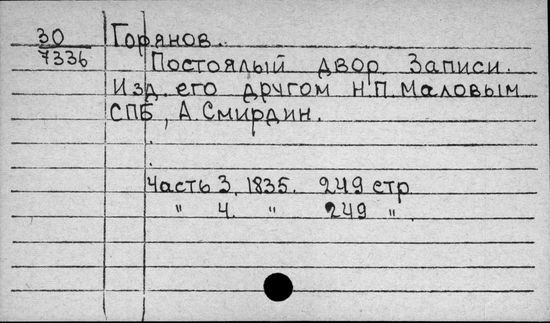 30 Горянов.
7336 Постоялый двор Записи.
Изд. его другом Н.П. Маловым
СПБ, А. Смирдин.
Часть 3. 1835. 249 стр
" 4. " 249 "